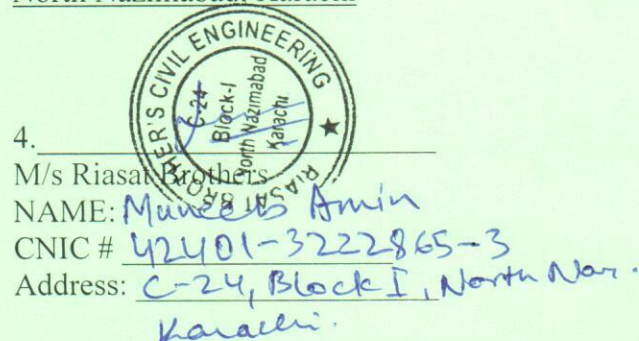 North Nazimabad, Karachi
RIASAT BROTHER'S CIVIL ENGINEERING
C-24
Block-I
North Nazimabad
Karachi
4.
M/s Riasat Brothers
NAME: Muneeb Amin
CNIC # 42401-3222865-3
Address: C-24, Block I, North Naz.
Karachi.